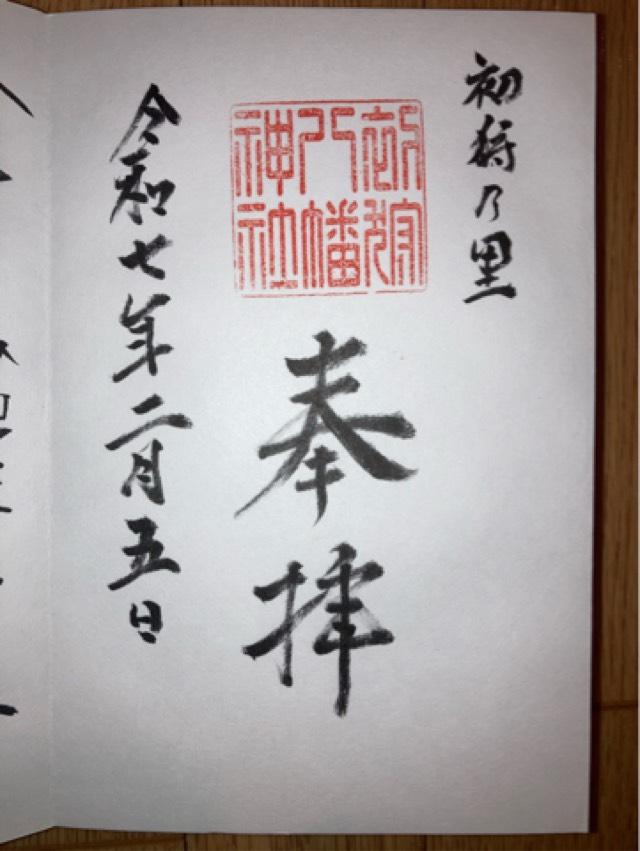 初狩乃里
初狩
八幡
神社
奉拝
令和七年二月五日